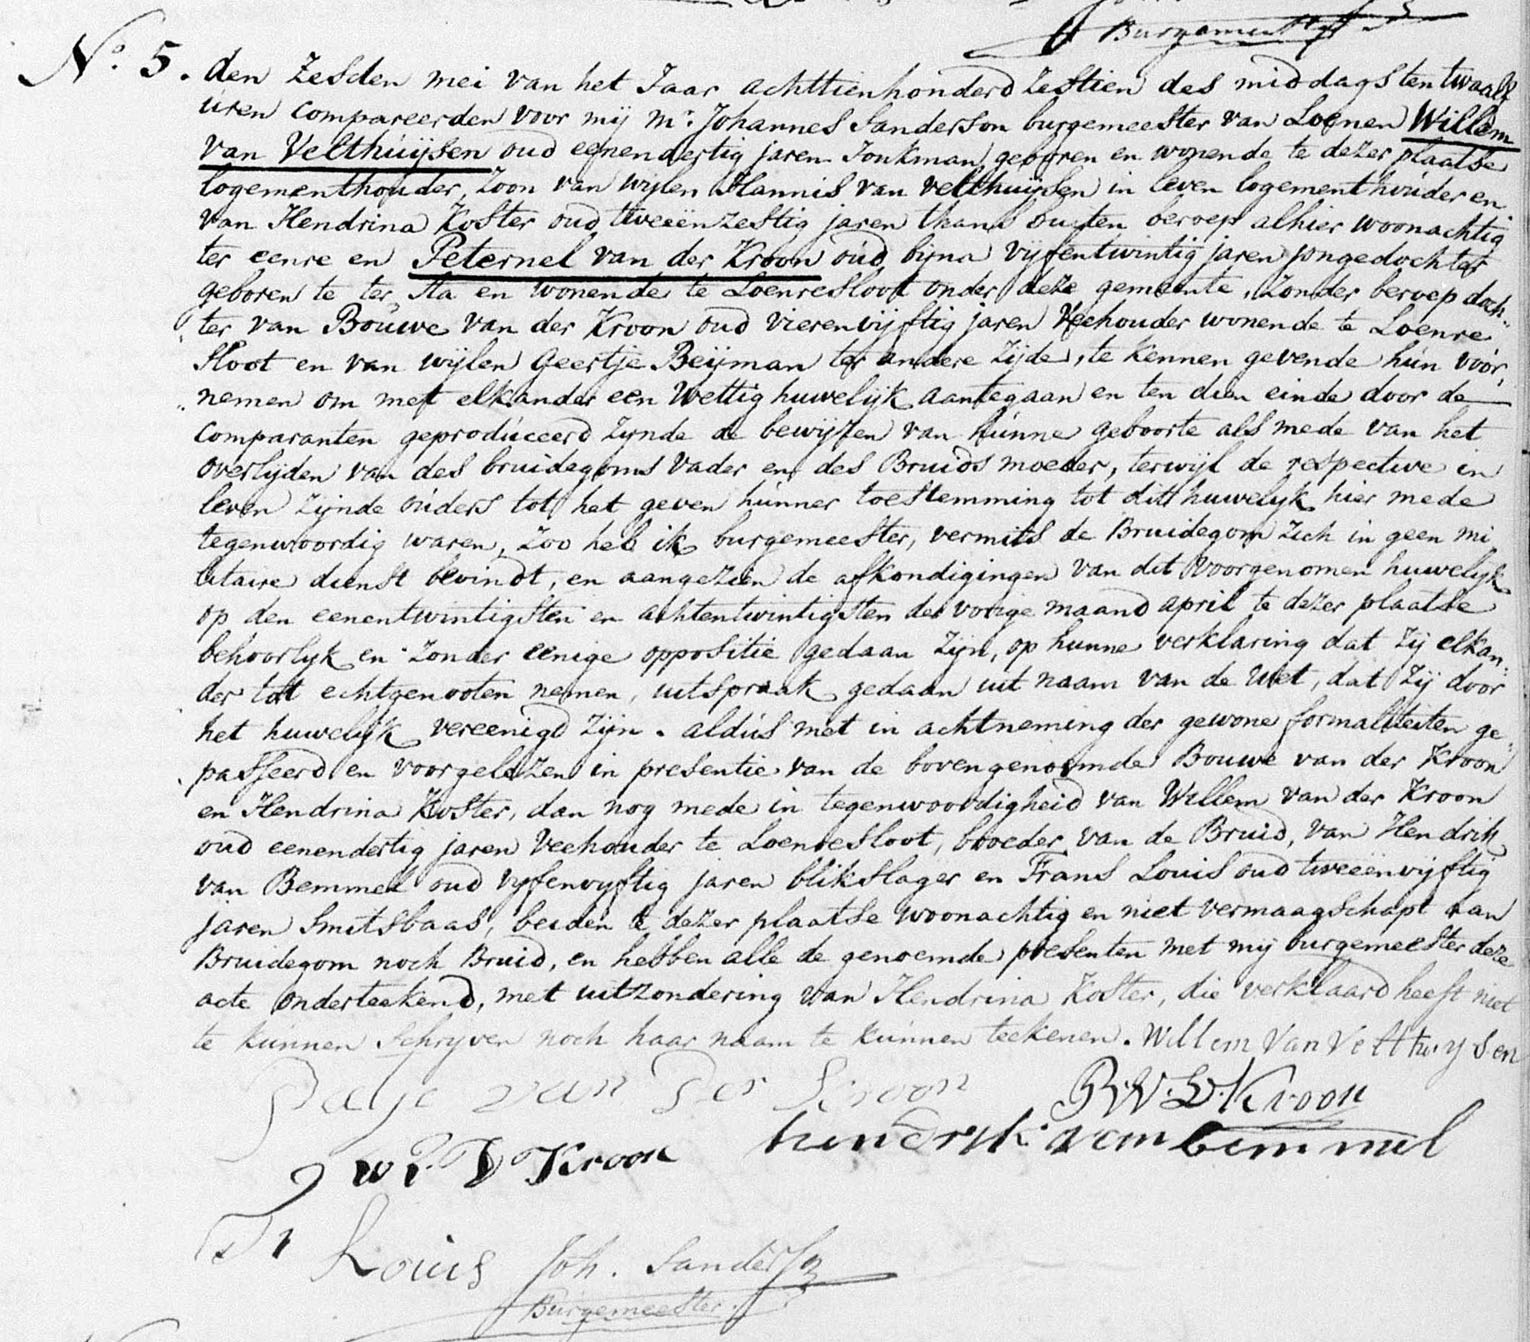 Burgemeester
N.o 5. den Zesden mei van het Jaar achttienhonderd Zestien des middags ten twaalf
uren compareerden voor mij mr. Johannes Sanderson burgemeester van Loenen Willem
van Velthuijsen oud eenendertig jaren Jonkman, geboren en wonende te dezer plaatse
logementhouder, Zoon van wijlen Hannis van Velthuijsen in leven logementhouder en
van Hendrina Koster oud tweeënzestig jaren thans buiten beroep alhier woonachtig
ter eenre en Peternel van der Kroon oud bijna vijfentwintig jaren jongedochter
geboren te ter Aa en wonende te Loenresloot onder deze gemeente, Zonder beroep doch„
„ter van Bouwe van der Kroon oud vierenvijftig jaren Veehouder wonende te Loenre
Sloot en van wijlen Geertje Beijman ter andere Zijde, te kennen gevende hun voor„
„nemen om met elkander een Wettig huwelijk aantegaan en ten dien einde door de
Comparanten geproduceerd Zijnde de bewijzen van hunne geboorte als mede van het
overlijden van des bruidegoms Vader en des Bruids moeder, terwijl de respective in
leven Zijnde ouders tot het geven hunner toestemming tot dit huwelijk hier mede
tegenwoordig waren, Zoo heb ik burgemeester, vermits de Bruidegom Zich in geen mi
litaire dienst bevindt, en aangezien de afkondigingen van dit voorgenomen huwelijk
op den eenentwintigsten en achtentwintigsten der vorige maand april te dezer plaatse
behoorlijk en Zonder eenige oppositie gedaan Zijn, op hunne verklaring dat Zij elkan„
der tot echtgenooten nemen, uitspraak gedaan uit naam van de Wet, dat Zij door
het huwelijk vereenigd Zijn. aldus met in achtneming der gewone formaliteiten ge„
passeerd en voorgelezen in presentie van de bovengenoemde Bouwe van der Kroon
en Hendrina Koster, dan nog mede in tegenwoordigheid van Willem van der Kroon
oud eenendertig jaren Veehouder te Loenresloot, broeder van de Bruid, van Hendrik
van Bemmel oud vijfenvijftig jaren blikslager en Frans Louis oud tweeënvijftig
jaren Smitsbaas, beiden te dezer plaatse woonachtig en niet vermaagschapt aan
Bruidegom noch Bruid, en hebben alle de genoemde presenten met mij burgemeester deze
acte onderteekend, met uitzondering van Hendrina Koster, die verklaard heeft niet
te kunnen Schrijven noch haar naam te kunnen teekenen. Willem Van Velthuysen
van der Kroon B.V.D. Kroon
W V D Kroon hendryk van bemmel
Fr Louis Joh. Sanderson
Burgemeester.